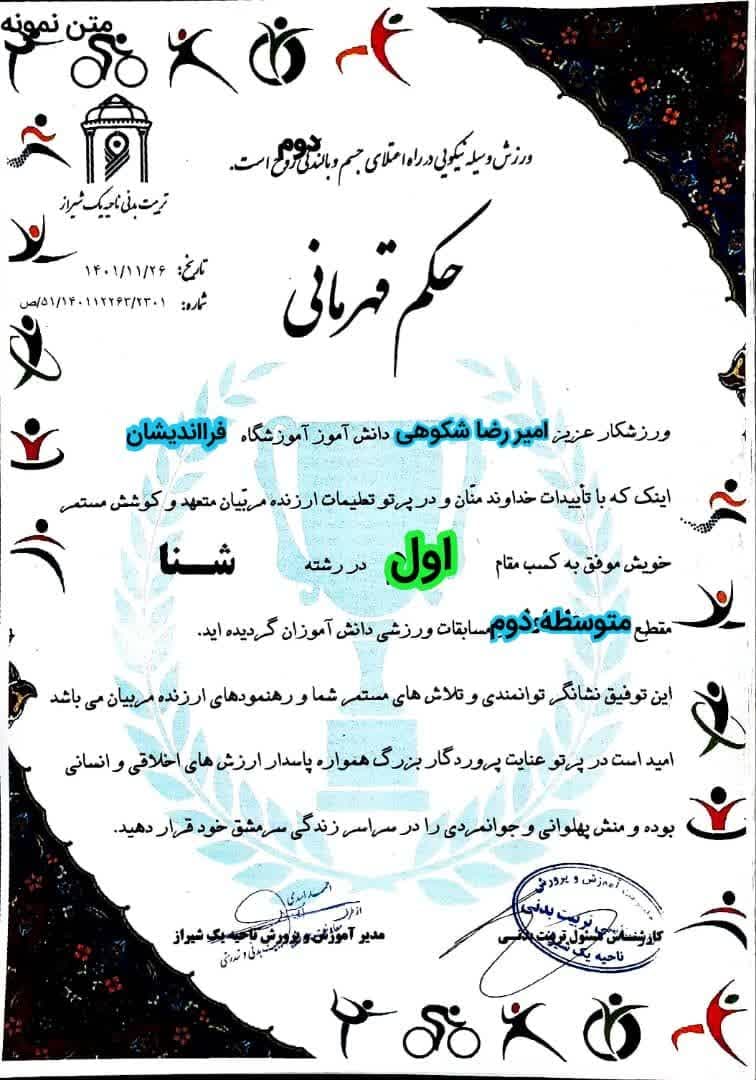 متن نمونه
ورزش وسیله نیکویی در راه اعتلای جسم و بالندگی روح است.
دوم
تربیت بدنی ناحیه یک شیراز
تاریخ: ۱۴۰۱/۱۱/۲۶
شماره: ۵۱/۱۴۰۱۱۲۲۶۳/۲۳۰۱/ص
حکم قهرمانی
ورزشکار عزیز امیر رضا شکوهی دانش آموز آموزشگاه فرااندیشان
اینک که با تأییدات خداوند منّان و در پرتو تعلیمات ارزنده مربّیان متعهد و کوشش مستمر
خویش موفق به کسب مقام اول در رشته شنا
مقطع متوسطه دوم مسابقات ورزشی دانش آموزان گردیده اید.
این توفیق نشانگر توانمندی و تلاش های مستمر شما و رهنمودهای ارزنده مربیان می باشد
امید است در پرتو عنایت پروردگار بزرگ همواره پاسدار ارزش های اخلاقی و انسانی
بوده و منش پهلوانی و جوانمردی را در سراسر زندگی سرمشق خود قرار دهید.
کارشناس مسئول تربیت بدنی
آموزش و پرورش
تربیت بدنی
ناحیه یک
مدیر آموزش و پرورش ناحیه یک شیراز